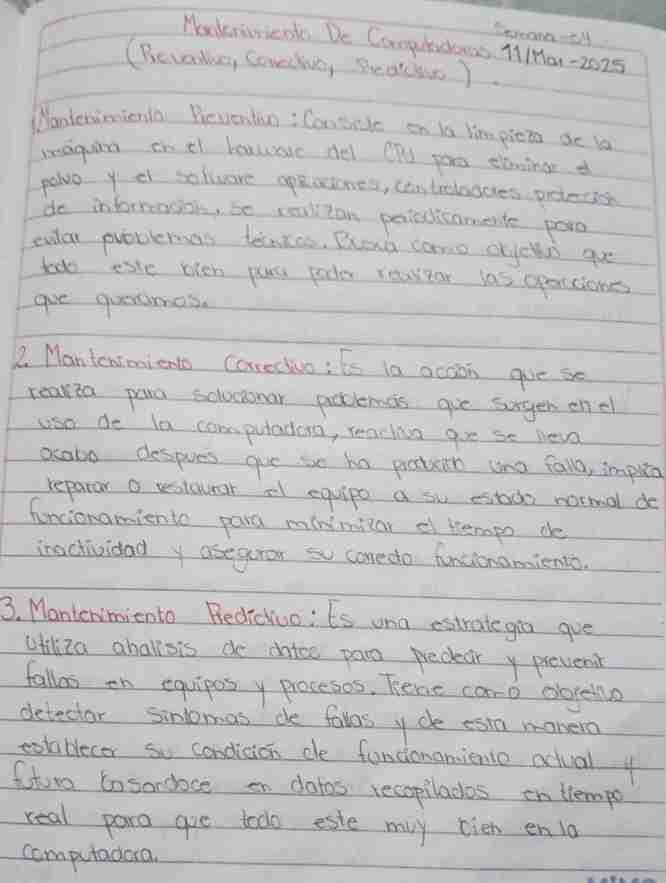 Semana-04
Mantenimiento De Computadoras 11/Mar-2025
(Prevantivo, Corectivo, Predictivo)
Mantenimiento Preventivo: Consiste en la limpieza de la
maquina en el hauware del CPU para eliminar el
polvo y el software aplicaciones, controladores protección
de información, se realizan periodicamente para
evitar problemas tecnicos. como objetivo que
todo este bien para poder realizar las operaciones
que queramos.
2. Mantenimiento Correctivo: Es la acción que se
realiza para solucionar problemas que surgen en el
uso de la computadora, reactiva que se lleva
acabo después que se ha producido una falla, implica
reparar o restaurar el equipo a su estado normal de
funcionamiento para minimizar el tiempo de
inactividad y asegurar su correcto funcionamiento.
3. Mantenimiento Predictivo: Es una estrategia que
utiliza analisis de datos para predecir y prevenir
fallas en equipos y procesos. Tiene como objetivo
detectar sintomas de fallas y de esta manera
establecer su condición de funcionamiento actual y
futura basandoce en datos recopilados en tiempo
real para que todo este muy bien en la
computadora.